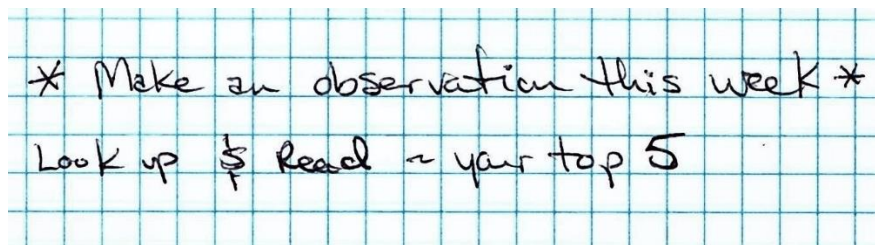 * Make an observation this week *
Look up & Read ~ your top 5